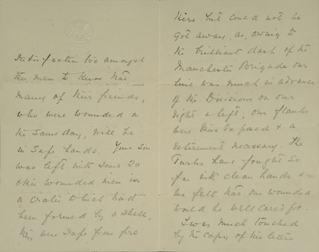 satisfaction to amongst
the men to know that
many of their friends,
who were wounded on
the same day, will be
in safe hands. Your son
was left with some 30
other wounded men in
a crater which had
been formed by a shell,
they were safe from fire
there but could not be
got away, as, owing to
the brilliant dash of the
Manchester Brigade our
line was much in advance
of the Divisions on our
right & left, our flanks
were thus exposed & a
retirement necessary. The
Turks have fought so
far with clean hands &
he felt that our wounded
would be well cared for.
I was much touched
by the copy of his letter